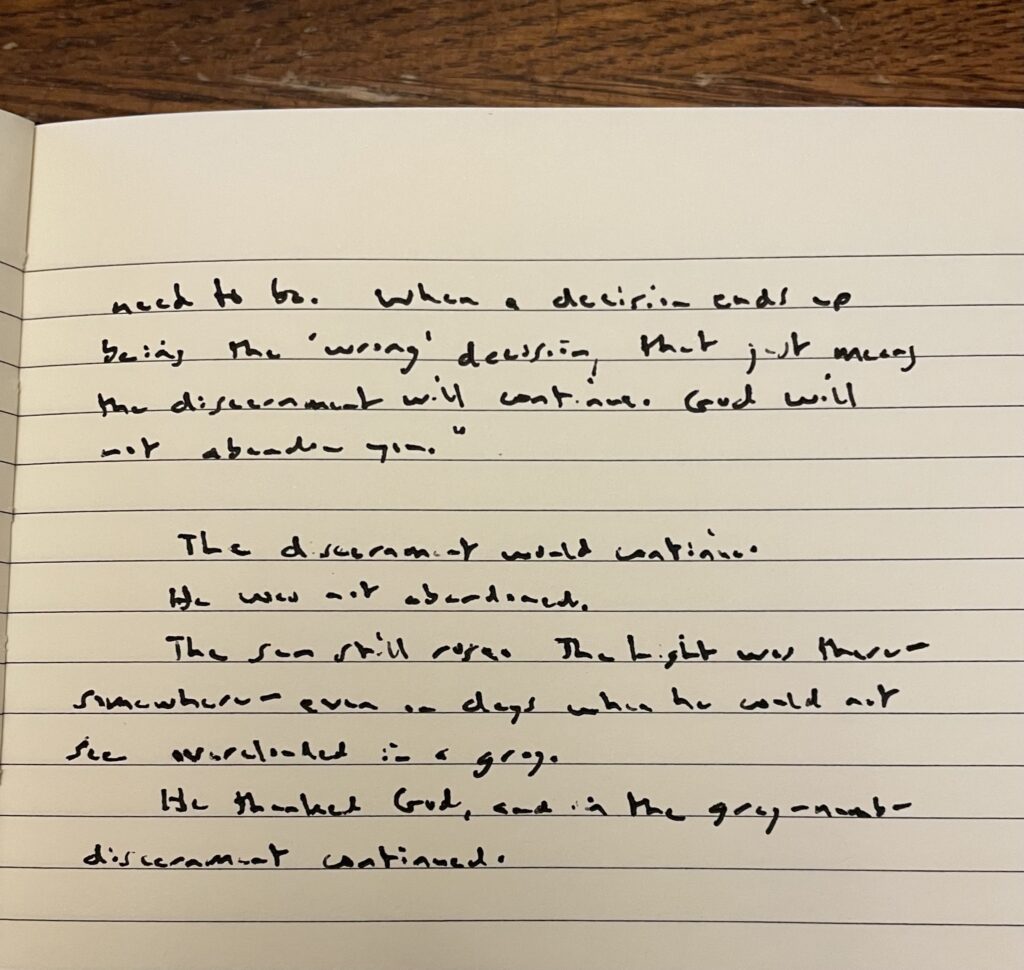 need to be. When a decision ends up
being the 'wrong' decision, that just means
the discernment will continue. God will
not abandon you."
The discernment would continue.
He was not abandoned.
The sun still rose. The light was there-
somewhere- even on days when he could not
see overclouded in a gray.
He thanked God, and in the gray-numb-
discernment continued.